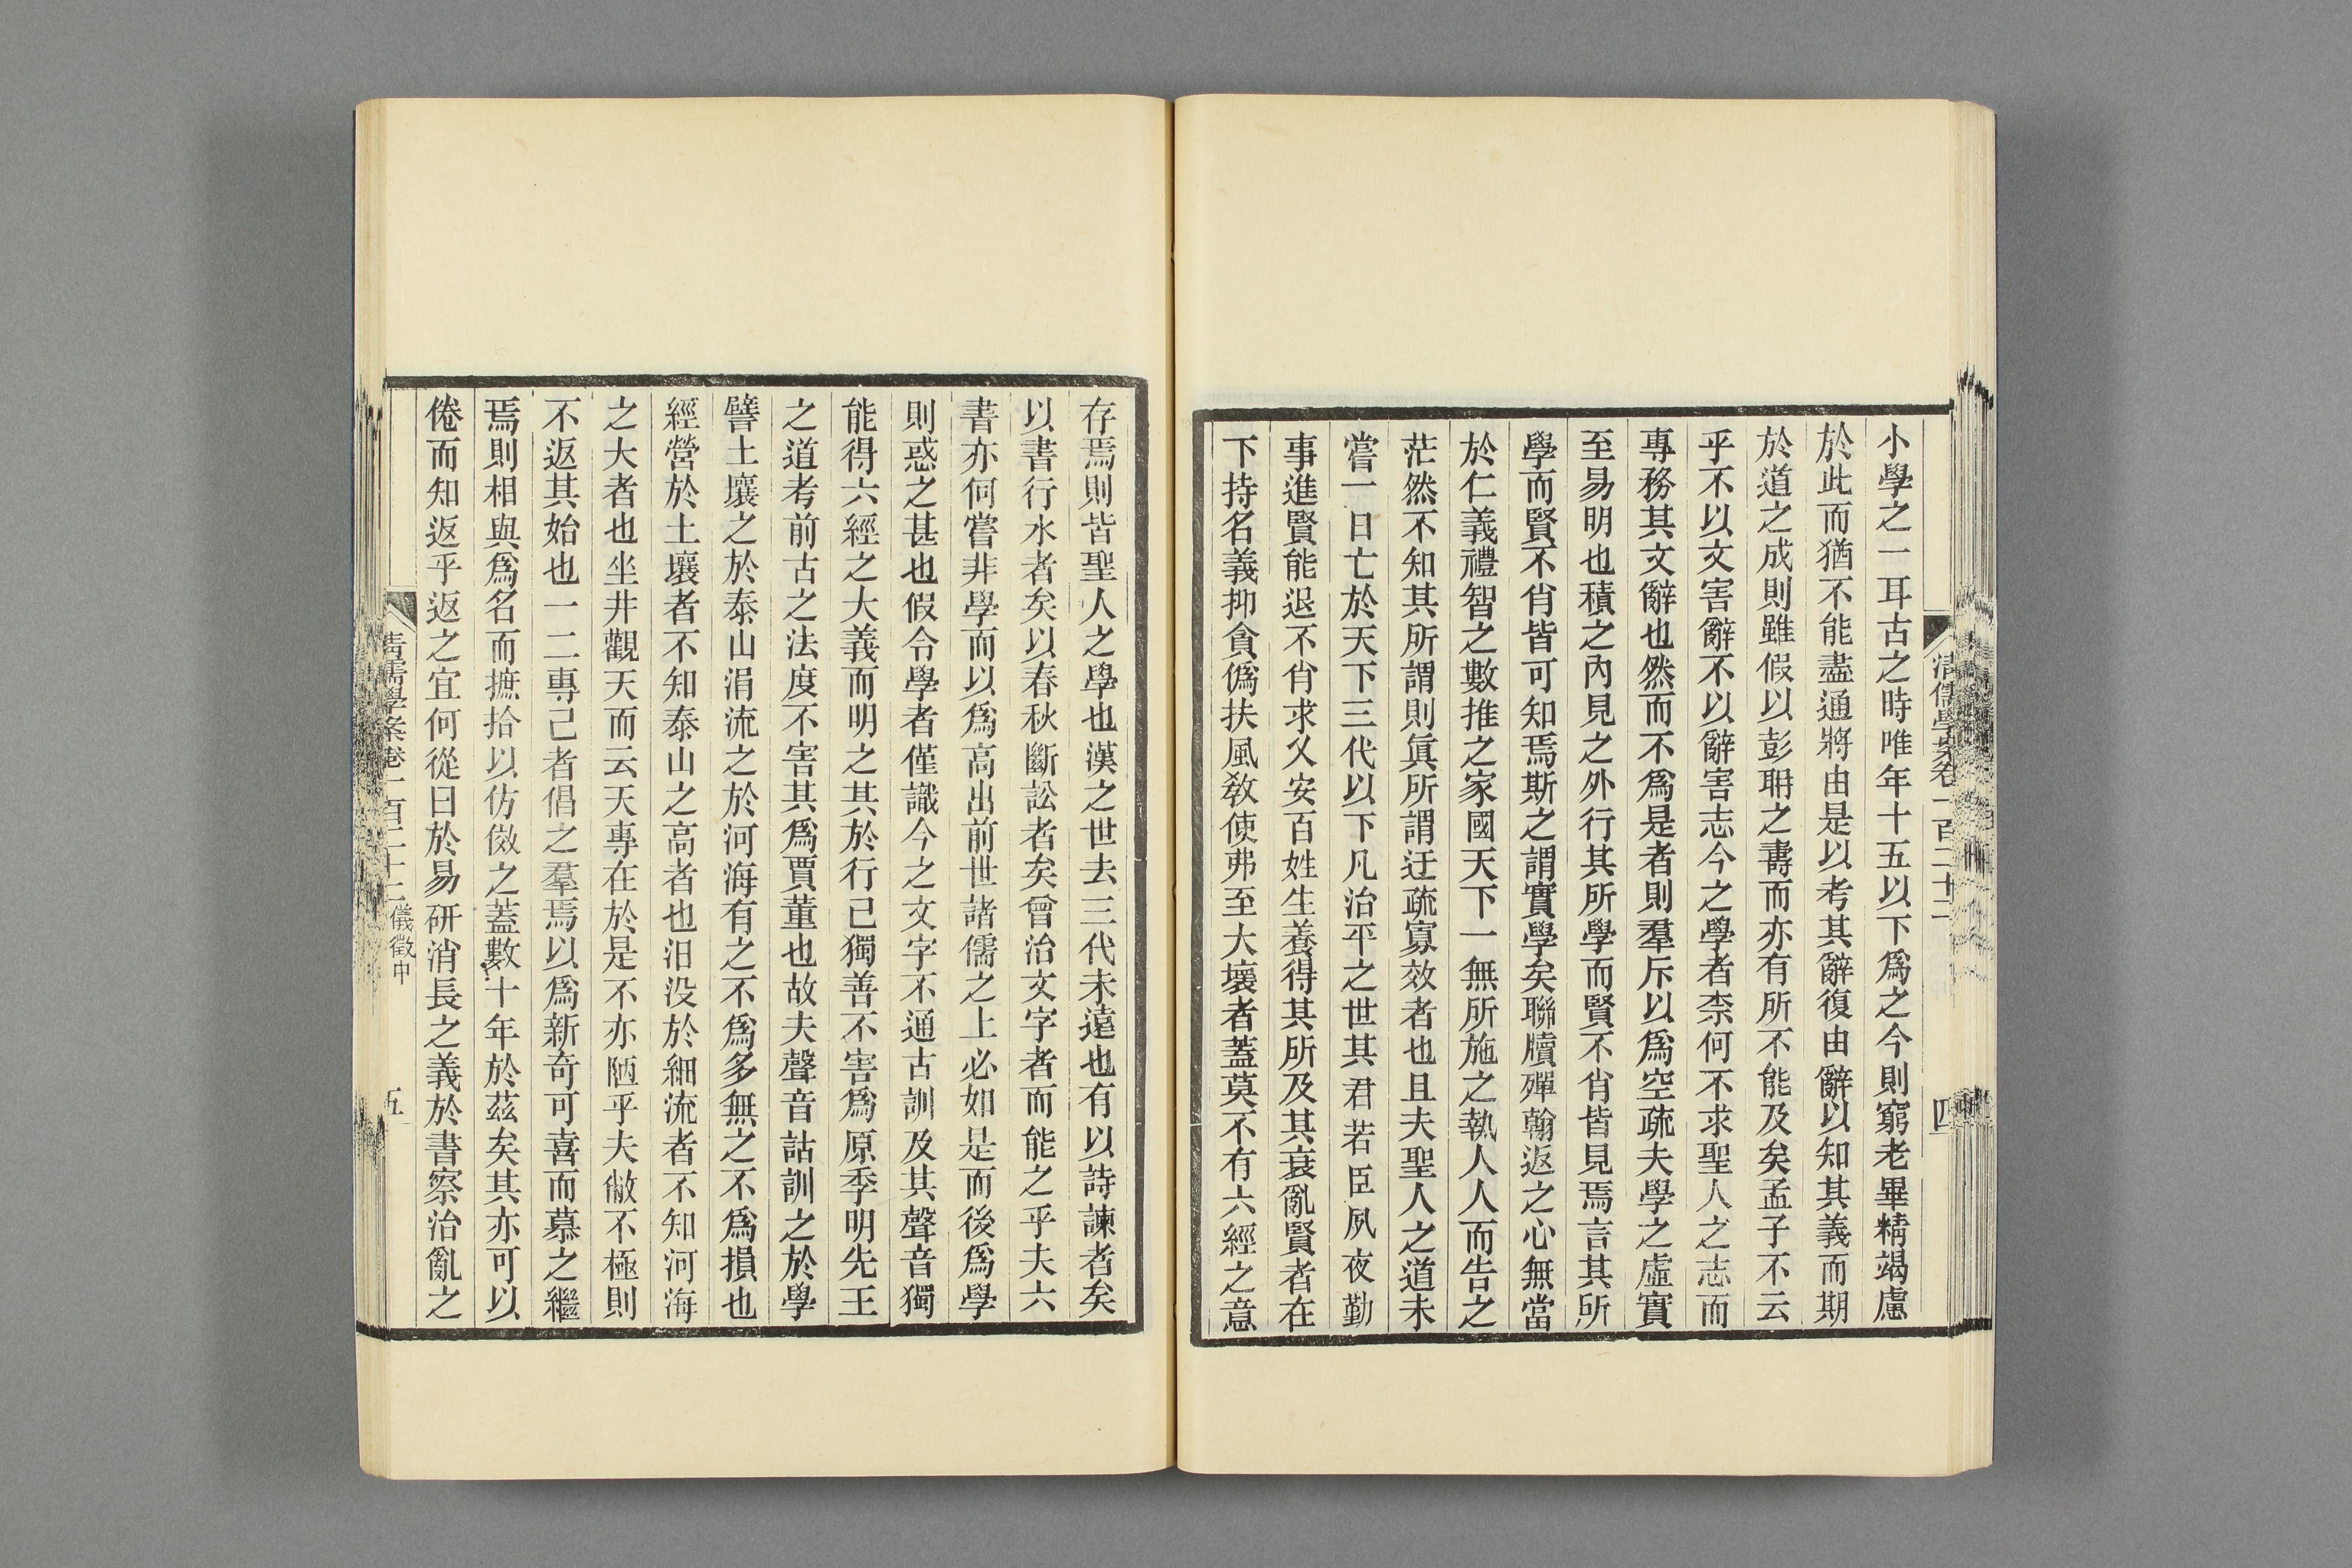 小學之一耳古之時唯年十五以下爲之今則窮老畢精竭慮
於此而猶不能盡通將由是以考其辭復由辭以知其義而期
於道之成則雖假以彭聃之壽而亦有所不能及矣孟子不云
乎不以文害辭不以辭害志今之學者柰何不求聖人之志而
專務其文辭也然而不爲是者則羣斥以爲空疏夫學之虛實
至易明也積之內見之外行其所學而賢不肖皆見焉言其所
學而賢不肖皆可知焉斯之謂實學矣聯牘殫翰返之心無當
於仁義禮智之數推之家國天下一無所施之執人人而告之
茫然不知其所謂則眞所謂迂疏寡效者也且夫聖人之道未
嘗一日亡於天下三代以下凡治平之世其君若臣夙夜勤
事進賢能退不肖求乂安百姓生養得其所及其衰亂賢者在
下持名義抑貪僞扶風敎使弗至大壞者蓋莫不有六經之意
清儒學案卷一百二十二
四
存焉則皆聖人之學也漢之世去三代未遠也有以詩諫者矣
以書行水者矣以春秋斷訟者矣曾治文字者而能之乎夫六
書亦何嘗非學而以爲高出前世諸儒之上必如是而後爲學
則惑之甚也假令學者僅識今之文字不通古訓及其聲音獨
能得六經之大義而明之其於行己獨善不害爲原季明先王
之道考前古之法度不害其爲賈董也故夫聲音詁訓之於學
譬土壤之於泰山涓流之於河海有之不爲多無之不爲損也
經營於土壤者不知泰山之高者也汨没於細流者不知河海
之大者也坐井觀天而云天專在於是不亦陋乎夫敝不極則
不返其始也一二專己者倡之羣焉以爲新奇可喜而慕之繼
焉則相與爲名而摭拾以仿傚之蓋數十年於茲矣其亦可以
倦而知返乎返之宜何從曰於易研消長之義於書察治亂之
清儒學案卷一百二十二 儀徵中
五